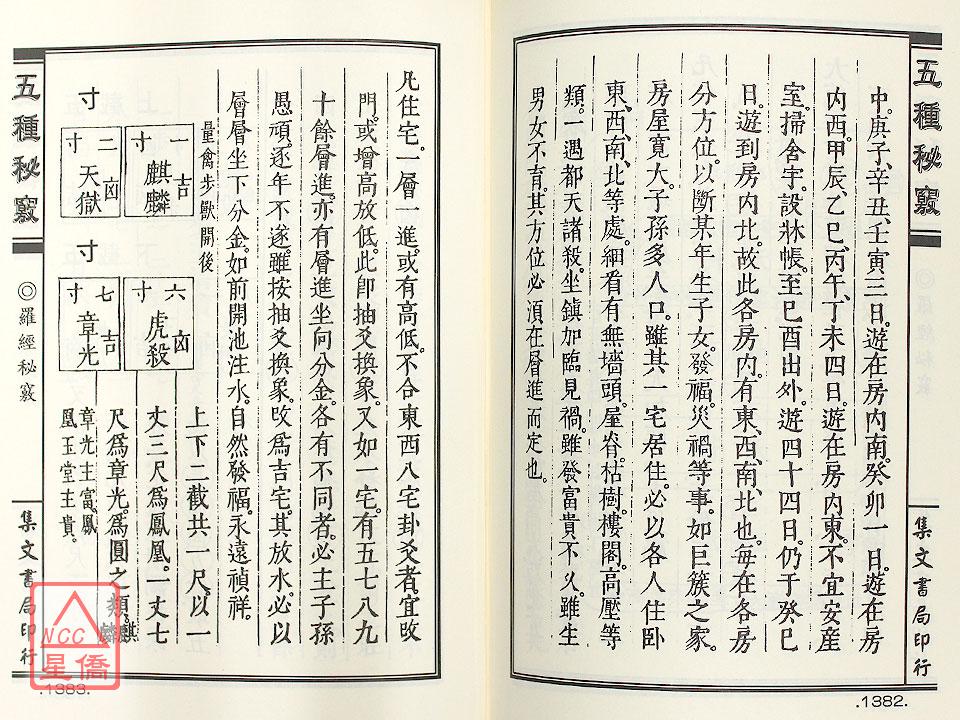 五種秘竅
集文書局印行
.1382.
中。庚子、辛丑、壬寅三日。遊在房內南。癸卯一日。遊在房
內西。甲辰、乙巳、丙午、丁未四日。遊在房內東。不宜安產
室。掃舍宇。設牀帳。至巳酉出外。遊四十四日。仍于癸巳
日。遊到房內北。故此各房內。有東、西、南、北也。每在各房
分方位。以斷某年生子女。發福。災禍等事。如巨簇之家。
房屋寬大。子孫多人口。雖共一宅居住。必以各人住卧
東、西、南、北等處。細看有無墻頭。屋脊枯樹。樓閣。高壓等
類。一遇都天諸殺。坐鎮加臨見禍。雖發富貴不久。雖生
男女不育。其方位必須在層進而定也。
五種秘竅
◎羅經秘竅
集文書局印行
.1383.
凡住宅。一層一進。或有高低。不合東西八宅卦爻者。宜改
門。或增高放低。此即抽爻換象。又如一宅。有五七八九
十餘層進。亦有層進坐向分金。各有不同者。必主子孫
愚頑。逐年不遂。雖按抽爻換象。改爲吉宅。其放水。必以
層層坐下分金。如前開池注水。自然發福。永遠禎祥。
量禽步獸開後
一寸 麒麟 吉
寸
二寸 天獄 凶
六寸 虎殺 凶
寸
七寸 章光 吉
上下二截共一尺。以一
丈三尺爲鳳凰。一丈七
尺爲章光。爲圓之類。麒麟
章光主富。鳳
凰玉堂主貴。
NCC
星僑